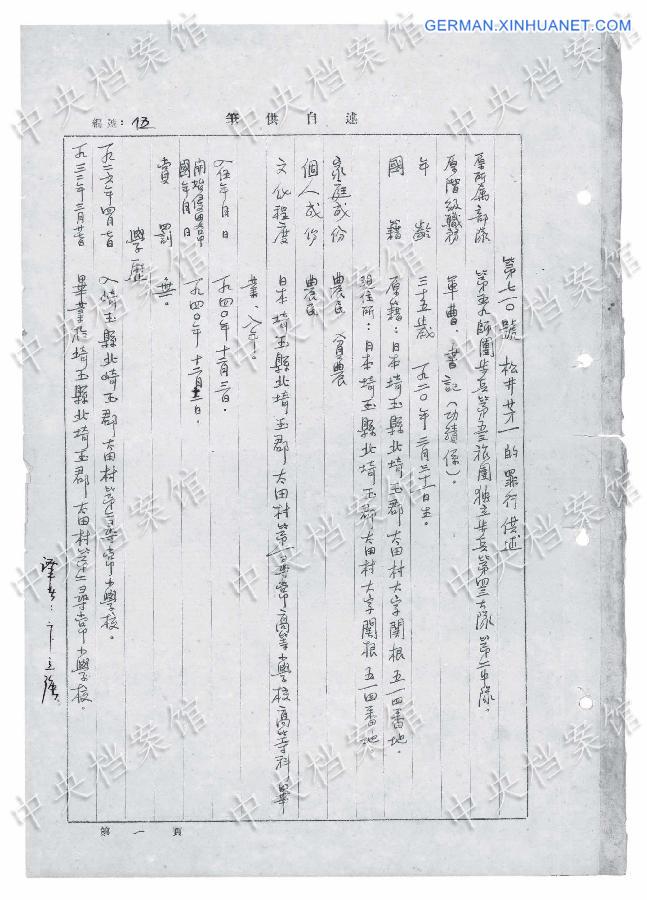 GERMAN.XINHUANET.COM
中央档案馆
述自供筆
編號：
第七一〇號 松井芽一的罪行供述
原所属部隊 第五九師團步兵第五三旅團獨立步兵第四三大隊第二中隊。
原階級職務 軍曹、書記（功績係）。
年齡 三十五歲 一九二〇年三月三十一日生。
國籍 原籍：日本埼玉縣北埼玉郡太田村大字關根五一四番地。
現住所：日本埼玉縣北埼玉郡太田村大字關根五一四番地
家庭成份 農民 貧農
個人成份 農民
文化程度 日本埼玉縣北埼玉郡太田村第二尋常高等小學校高等科畢
業、
入伍年月日 一九四〇年十二月三日。
開始侵略中國年月日 一九四〇年十二月
賞罰 無。
學歷
一九二六年四月 入埼玉縣北埼玉郡太田村第二尋常小學校。
一九三二年三月 畢業於埼玉縣北埼玉郡太田村第二尋常小學校。
譯者：
第一頁